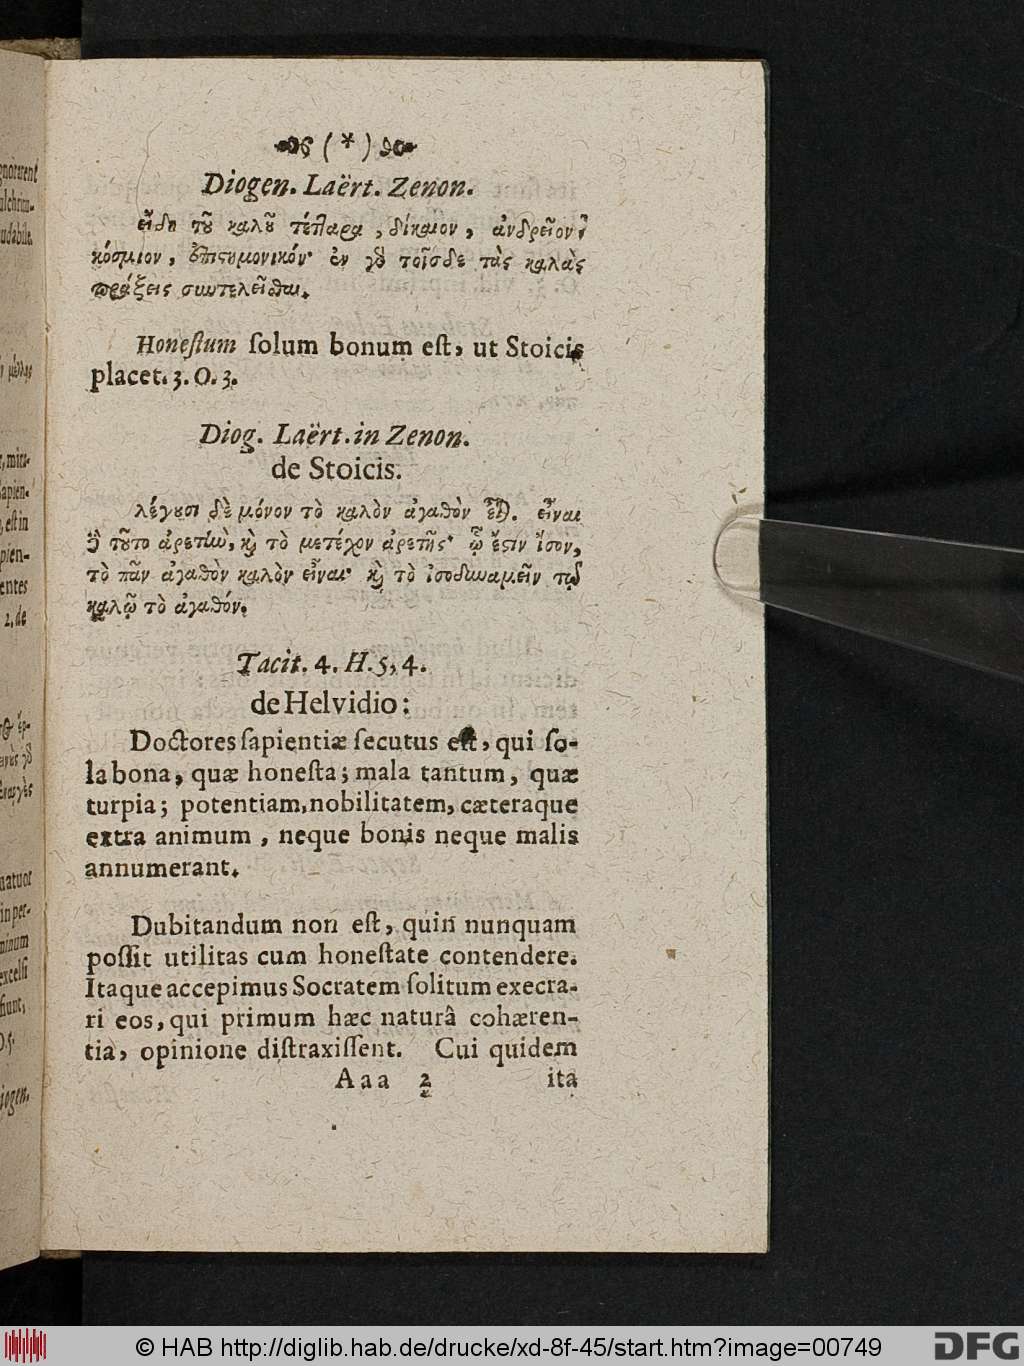 (*)
Diogen. Laërt. Zenon.
εἴδη τȣ͂ καλȣ͂ τέτταρα, δίκαιον, ἀνδρεῖον,
κόσμιον, ἐπιϛημονικόν· ἐν γὸ τοῖσδε τὰς καλὰς
πράξεις συντελεῖσθαι.
Honeſtum ſolum bonum eſt, ut Stoicis
placet. 3. O. 3.
Diog. Laërt. in Zenon.
de Stoicis.
λέγȣσι δὲ μόνον τὸ καλὸν ἀγαθὸν εἶ). εἶναι
τȣ͂το ἀρετὴν, ϗ τὸ μετέχον ἀρετῆς· ᾧ ἔϛιν ἴσον,
τὸ πᾶν ἀγαθὸν καλὸν εἶναι· ϗ τὸ ἰσοδυναμεῖν τῷ
καλῷ τὸ ἀγαθόν.
Tacit. 4. H. 5, 4.
de Helvidio:
Doctores ſapientiæ ſecutus eſt, qui ſo-
la bona, quæ honeſta; mala tantum, quæ
turpia; potentiam, nobilitatem, cæteraque
extra animum, neque bonis neque malis
annumerant.
Dubitandum non eſt, quin nunquam
poſſit utilitas cum honeſtate contendere.
Itaque accepimus Socratem ſolitum execra-
ri eos, qui primum hæc naturâ cohæren-
tia, opinione diſtraxiſſent. Cui quidem
Aaa 2 ita
© HAB http://diglib.hab.de/drucke/xd-8f-45/start.htm?image=00749
DFG